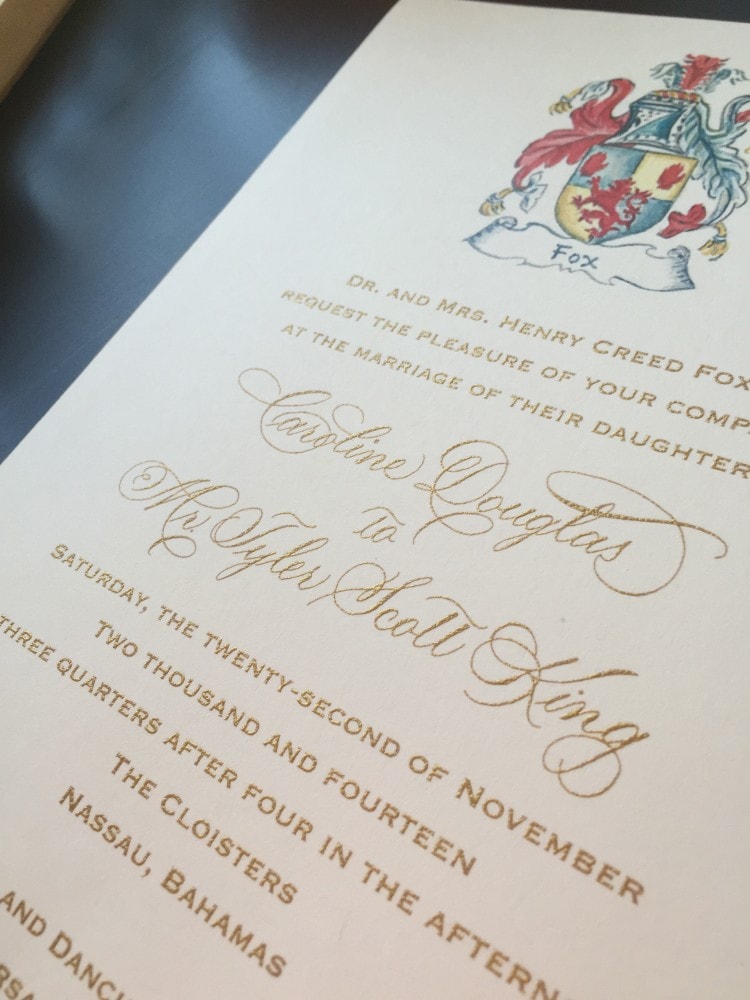 Fox
Dr. and Mrs. Henry Creed Fox
request the pleasure of your comp
at the marriage of their daughter
Caroline Douglas
to
Mr. Tyler Scott King
Saturday, the twenty-second of November
Two thousand and fourteen
three quarters after four in the aftern
The Cloisters
Nassau, Bahamas
and Danc